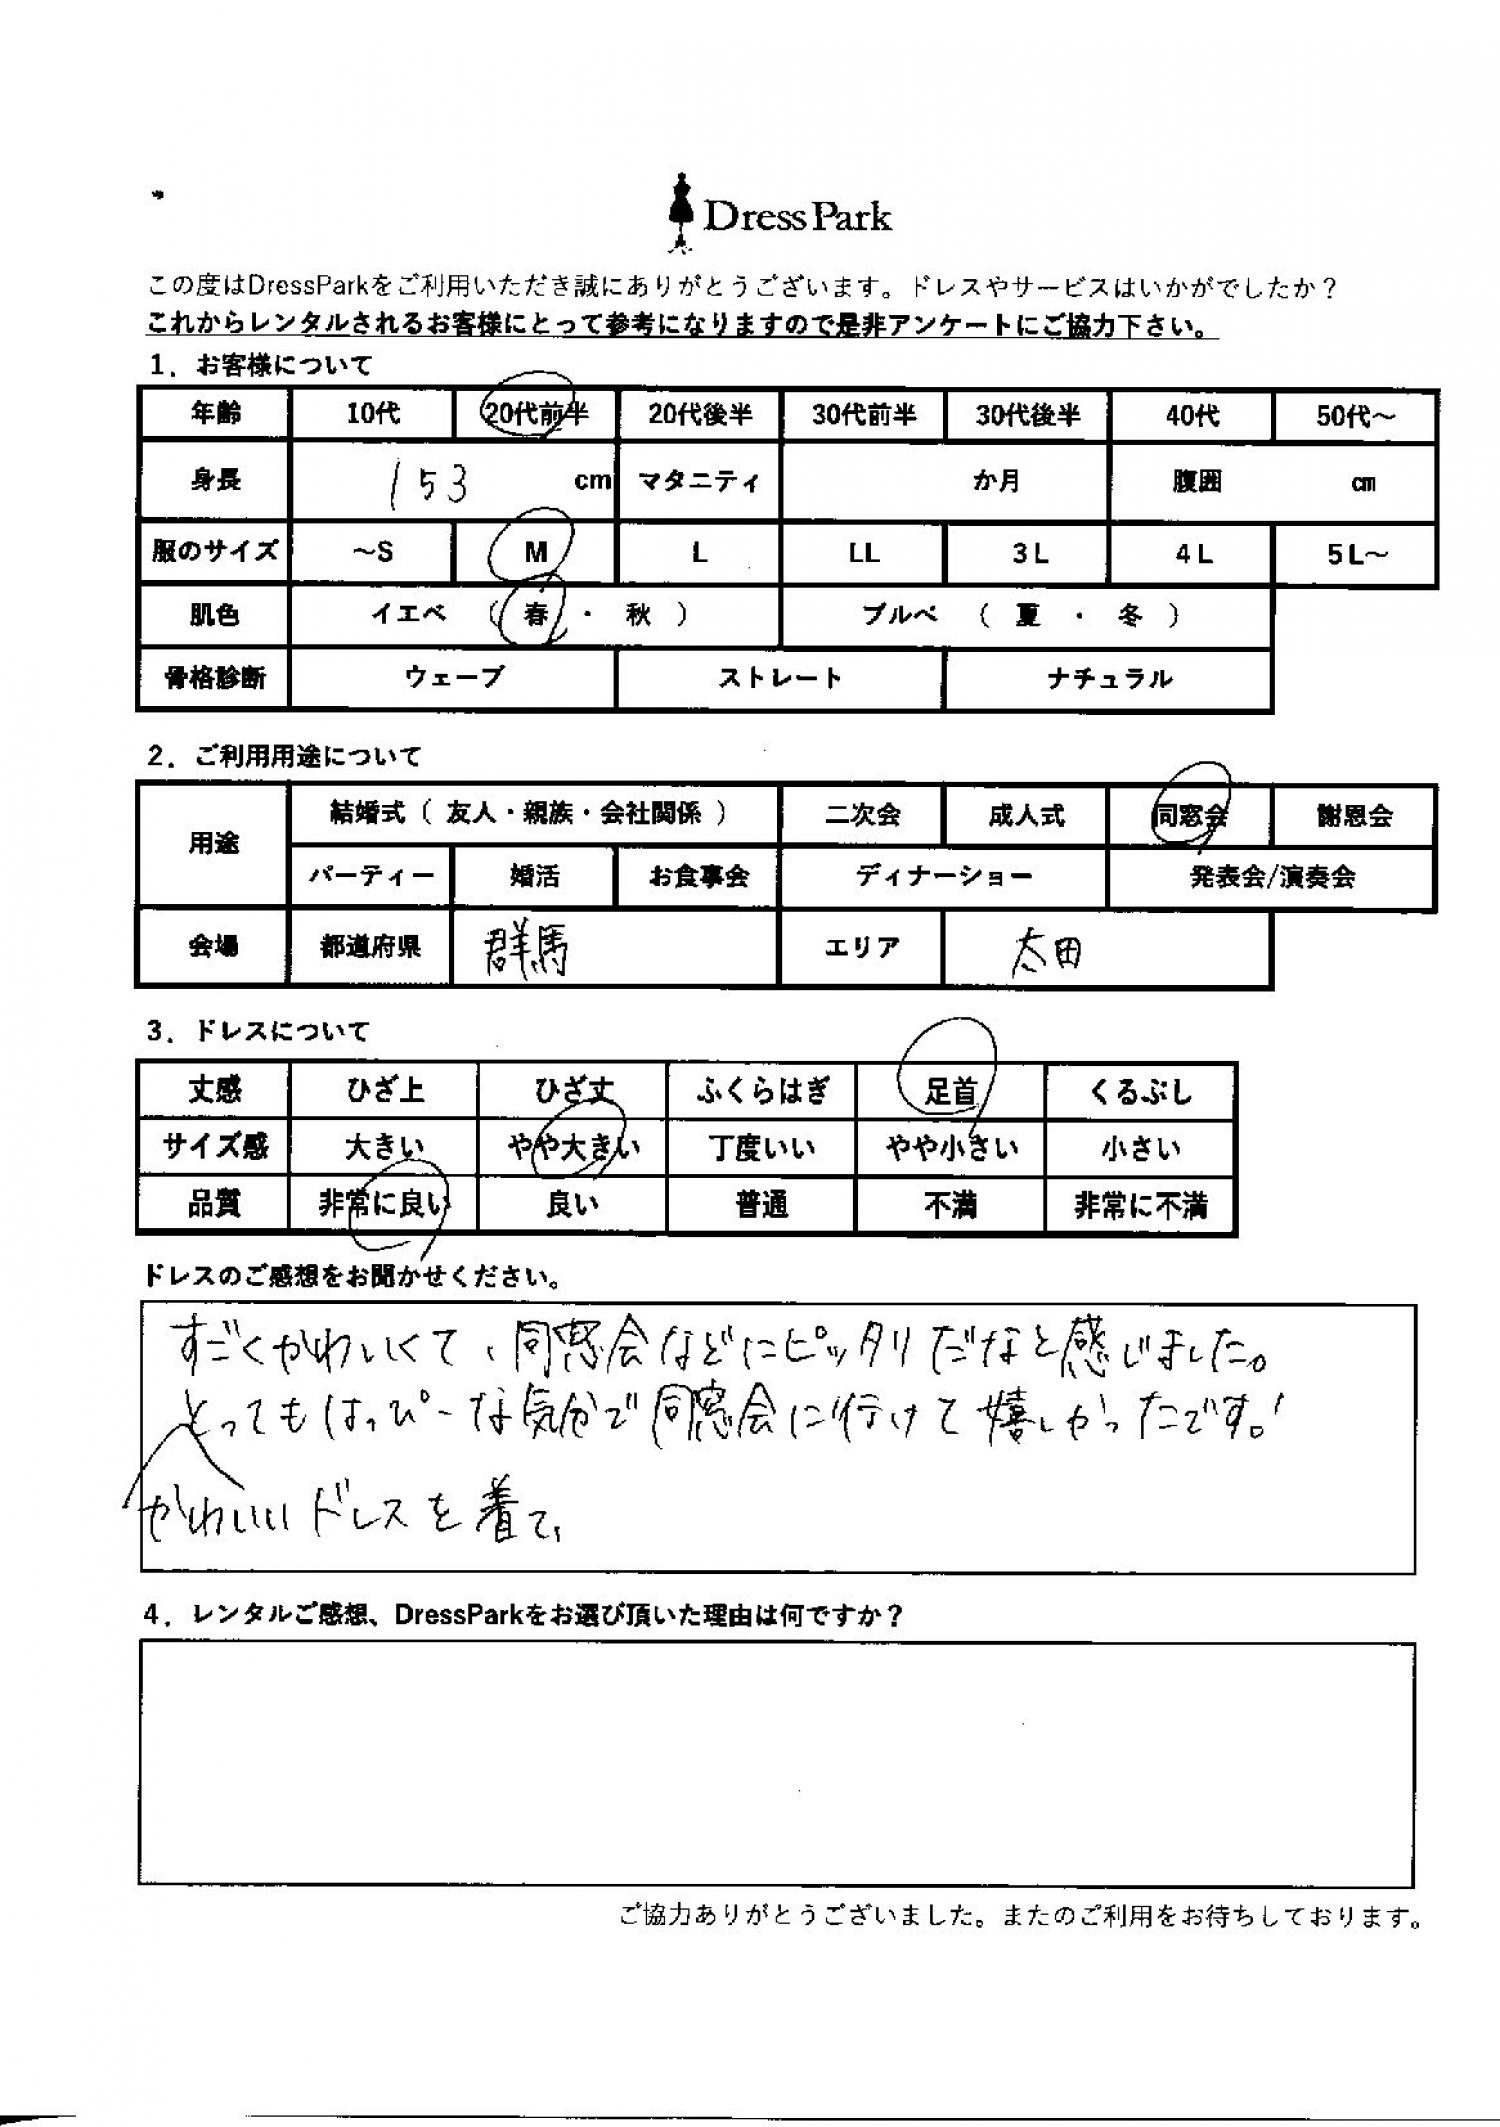 DressPark
この度はDressParkをご利用いただき誠にありがとうございます。ドレスやサービスはいかがでしたか？
これからレンタルされるお客様にとって参考になりますので是非アンケートにご協力下さい。
1．お客様について
年齢 10代 20代前半 20代後半 30代前半 30代後半 40代 50代～
身長 153 cm マタニティ か月 腹囲 ㎝
服のサイズ ～S M L LL 3L 4L 5L～
肌色 イエベ （ 春 ・ 秋 ） ブルベ （ 夏 ・ 冬 ）
骨格診断 ウェーブ ストレート ナチュラル
2．ご利用用途について
用途 結婚式（ 友人・親族・会社関係 ） 二次会 成人式 同窓会 謝恩会
パーティー 婚活 お食事会 ディナーショー 発表会/演奏会
会場 都道府県 群馬 エリア 太田
3．ドレスについて
丈感 ひざ上 ひざ丈 ふくらはぎ 足首 くるぶし
サイズ感 大きい やや大きい 丁度いい やや小さい 小さい
品質 非常に良い 良い 普通 不満 非常に不満
ドレスのご感想をお聞かせください。
すごくかわいくて、同窓会などにピッタリだなと感じました。
とってもはっぴーな気分で同窓会に行けて嬉しかったです。!
かわいいドレスを着て、
4．レンタルご感想、DressParkをお選び頂いた理由は何ですか？
ご協力ありがとうございました。またのご利用をお待ちしております。